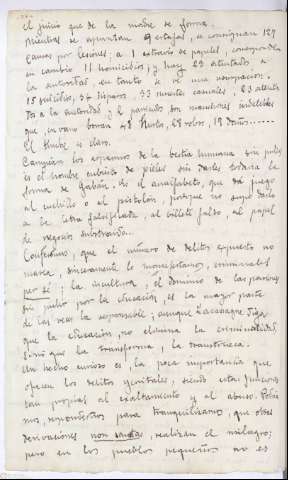 el juicio que de la madre se forma.
Mientras se apuntan 9 estafas, se consignan 129
causas por lesiones; a 1 extravío de papeles, corresponden
en cambio 11 homicidios, y hay 23 atentados a
la autoridad, en tanto se de una usurpacion.
15 suicidios, 34 disparos, 33 muertes casuales, 23 atenta
dos a la autoridad; y pasando son manchones indelebles
que en vano borran 48 hurtos, 68 robos, 18 daños......
El hombre es claro.
Campean los espasmos de la bestia humana sin pulir
es el hombre cubierto de pieles sin darles todavía la
forma de gabán. Es el analfabeto, que dá juego
al cuchillo o al pistolón, porque no supo darlo
a la letra falsificada, al billete falso, al papel
de negocio
Confesamos, que el número de delitos expuesto no
marca, sinceramente lo manifestamos, criminalidad
per sé; la incultura, el dominio de las pasiones
sin pulir por la educación, es la mayor parte
de las veces la responsable; aunque Lacasagne diga
que la educación, no elimina la criminalidad
sino que la transforma, la
Un hecho curioso es, la poca importancia que
ofrecen los delitos genitales, siendo estas funciones
tan propias al exaltamiento y al abuso.
mos, para tranquilizarnos, que otras
derivaciones non sanctas, realizan el milagro;
pero en los pueblos pequeños no es